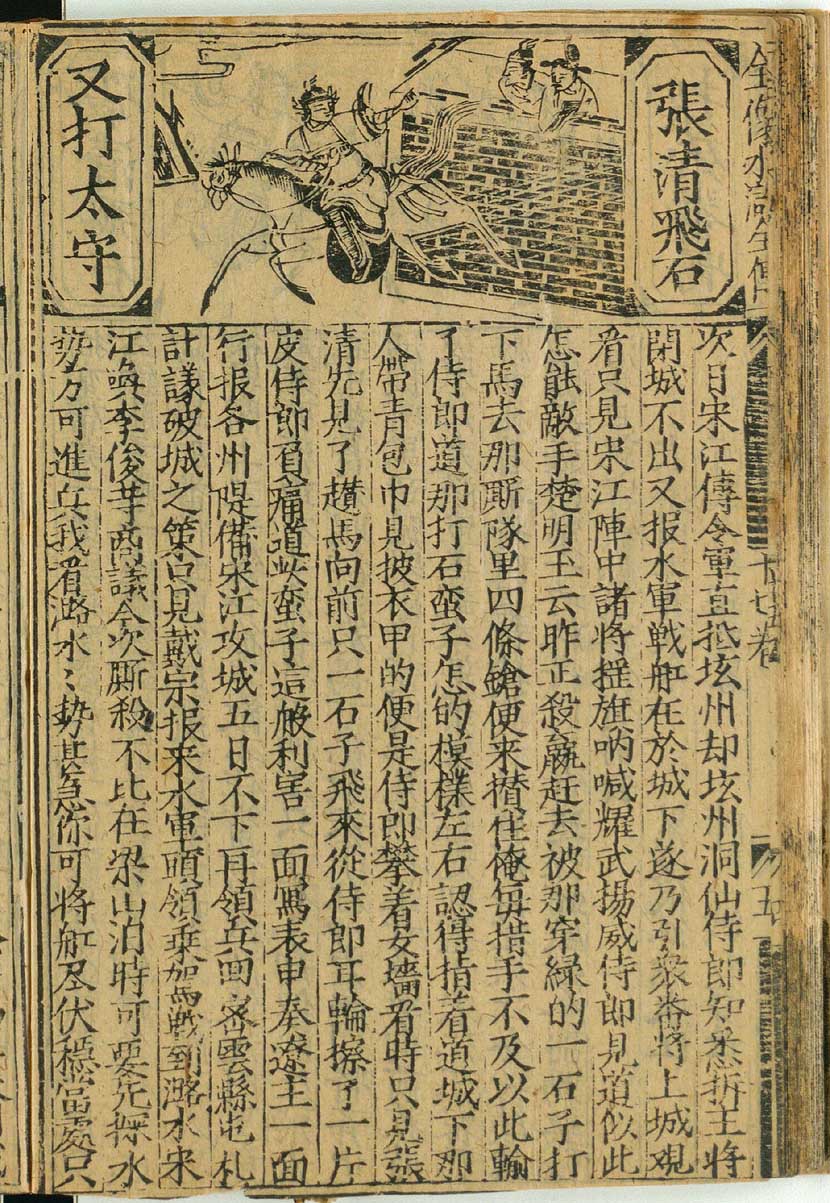 全像水滸全傳
十七卷
五
張清飛石
又打太守
次日宋江傳令軍直抵玹州却玹州洞仙侍郎知悉折王將
閉城不出又报水軍戦舡在於城下遂乃引衆畨將上城覌
看只見宋江陣中諸將摇旗呐喊耀武揚威侍郎見道似此
怎能敵手楚明玉云昨正殺贏赶去被那穿緑的一石子打
下馬去那厮隊里四條鎗便来攅住俺每措手不及以此輸
了侍郎道那打石蛮子怎的模様左右認得指着道城下那
人帶青包巾見披衣甲的便是侍郎攀着女墻看時只見張
清先見了趲馬向前只一石子飛來從侍郎耳輪擦了一片
皮侍郎負痛道此蛮子這般利害一面寫表申奏遼主一面
行报各州隄備宋江攻城五日不下再領兵囬宻雲縣屯札
計議破城之策只見戴宗报来水軍頭領乗駕戦到潞水宋
江喚李俊等商議今次厮殺不比在梁山泊時可要先探水
势方可進兵我看潞水〻势甚急你可将舡及伏穏當處只